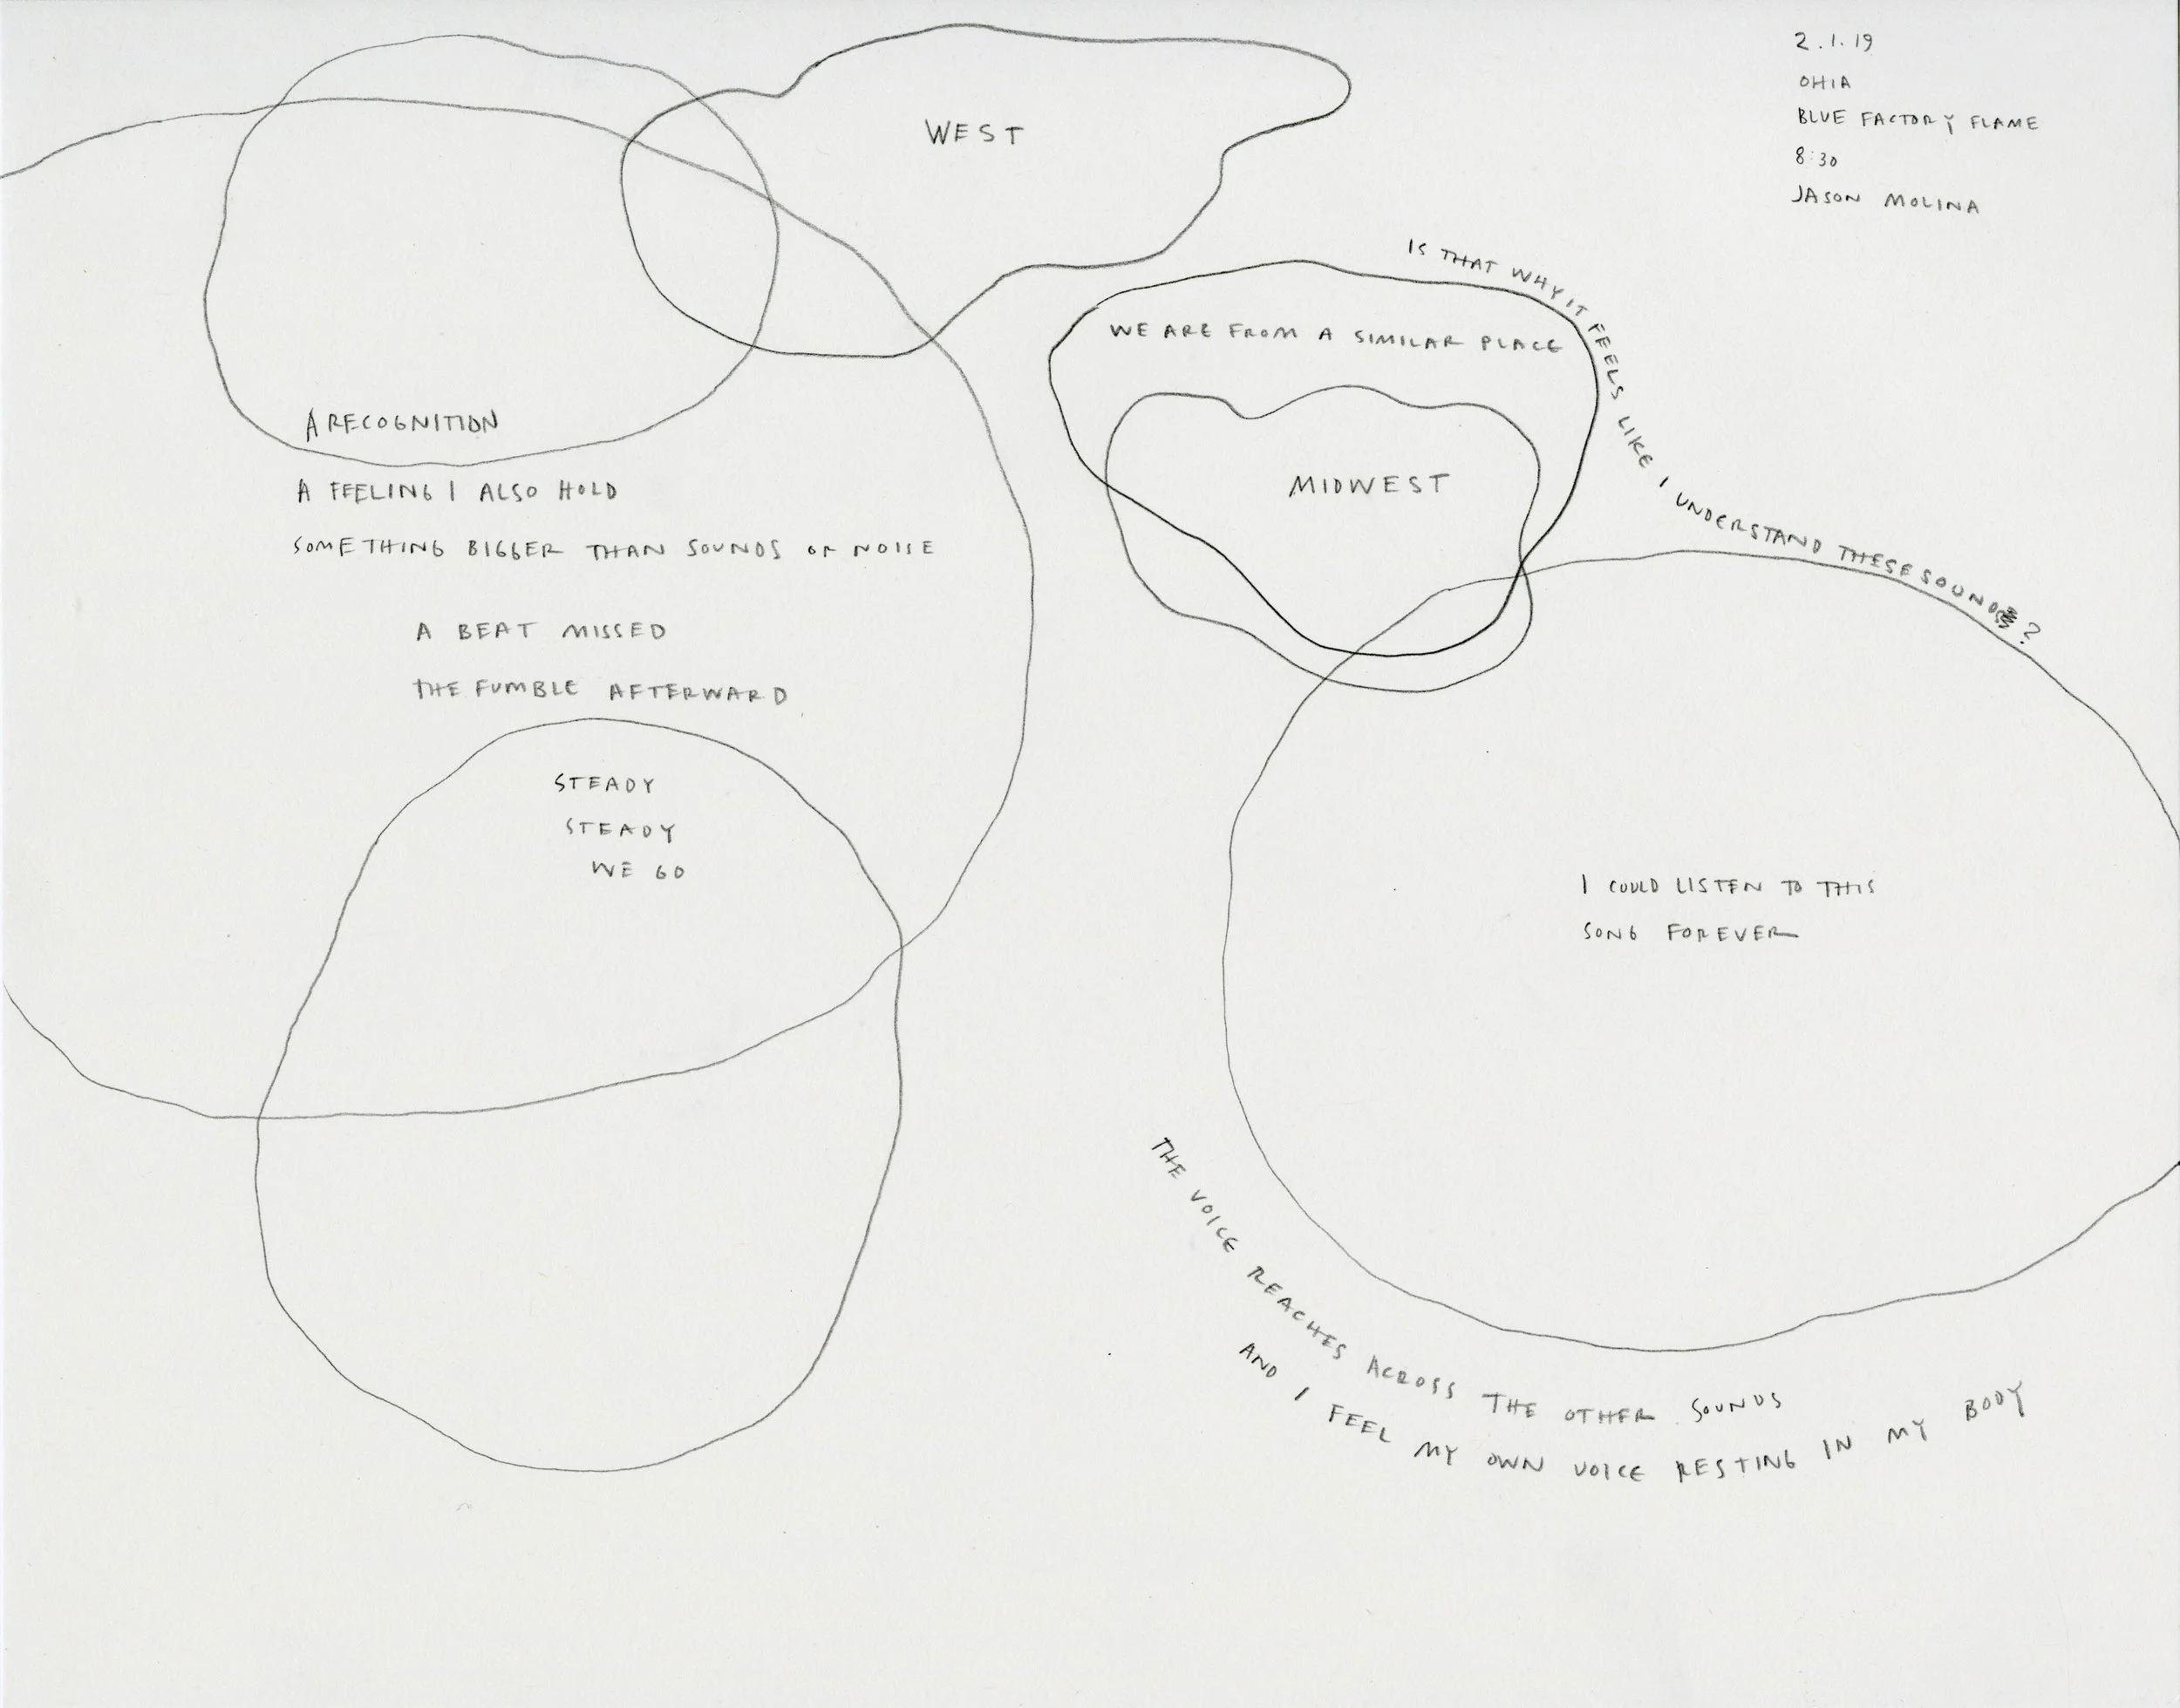 2.1.19
OHIA
BLUE FACTORY FLAME
8:30
JASON MOLINA
WEST
IS THAT WHY IT FEELS LIKE I UNDERSTAND THESE SOUNDS?
WE ARE FROM A SIMILAR PLACE
MIDWEST
A RECOGNITION
A FEELING I ALSO HOLD
SOMETHING BIGGER THAN SOUNDS OR NOISE
A BEAT MISSED
THE FUMBLE AFTERWARD
STEADY
STEADY
WE GO
I COULD LISTEN TO THIS
SONG FOREVER
THE VOICE REACHES ACROSS THE OTHER SOUNDS
AND I FEEL MY OWN VOICE RESTING IN MY BODY